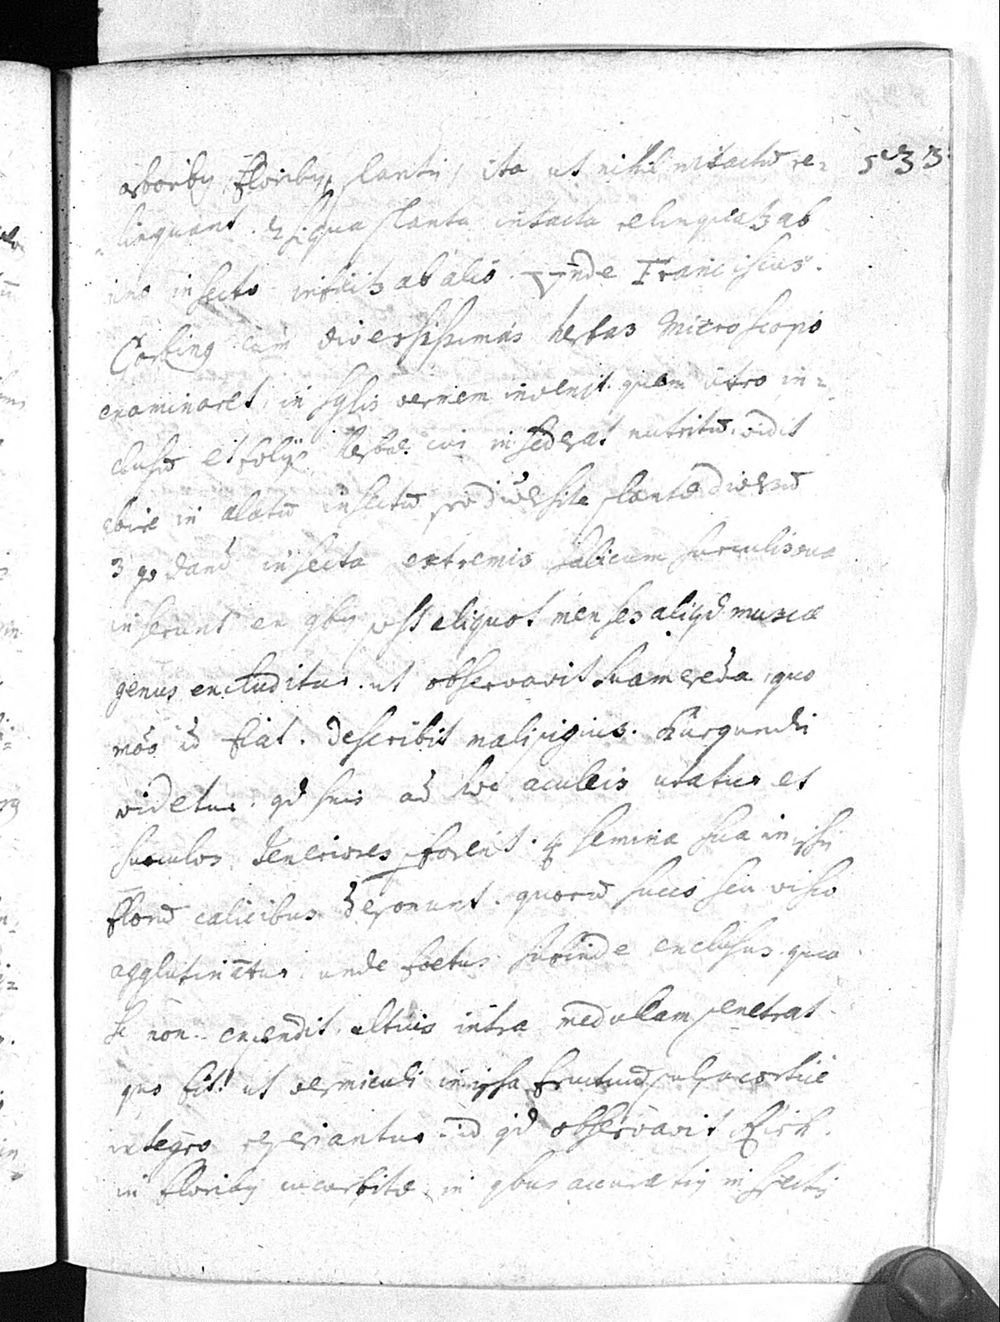 533
arboribꝯ, floribꝯ, plantis, ita ut nihil intactū re=
linquant. & si qua planta intacta relinquatʒ ab
uno insecto infilitʒ ab alio. Vnde Franciscus
cum diversissimas herbas microscopio
examinaret, in sylis vermem invenit. quem utro in=
clusū et folijs herbæ. cui insederat nutritū. vidit
abire in alatū insectū pro diversitate plantæ diversū
quædam insecta extremis salicum surculis ova
inserunt ex qbꝯ post aliquot menses aliqd muscæ
genus excluditur. ut observavit Suamerda, quo
mōo id fiat. Describit malpigius.
videtur. qd suis ad hoc aculeis utatur et
surculos teneriores forent. & semina sua in ipsis
florū calicibus deponunt. quorū succo seu visco
agglutinātur. unde foetus subinde exclusus. qua
se non expendit. altius intra medullam penetrat
quo fit! ut vermiculi in ipsa fructuū pulpa cortice
integro reperiantur. id qd observavit
in floribꝯ cucurbitæ, in qbus accuratiꝯ inspectis